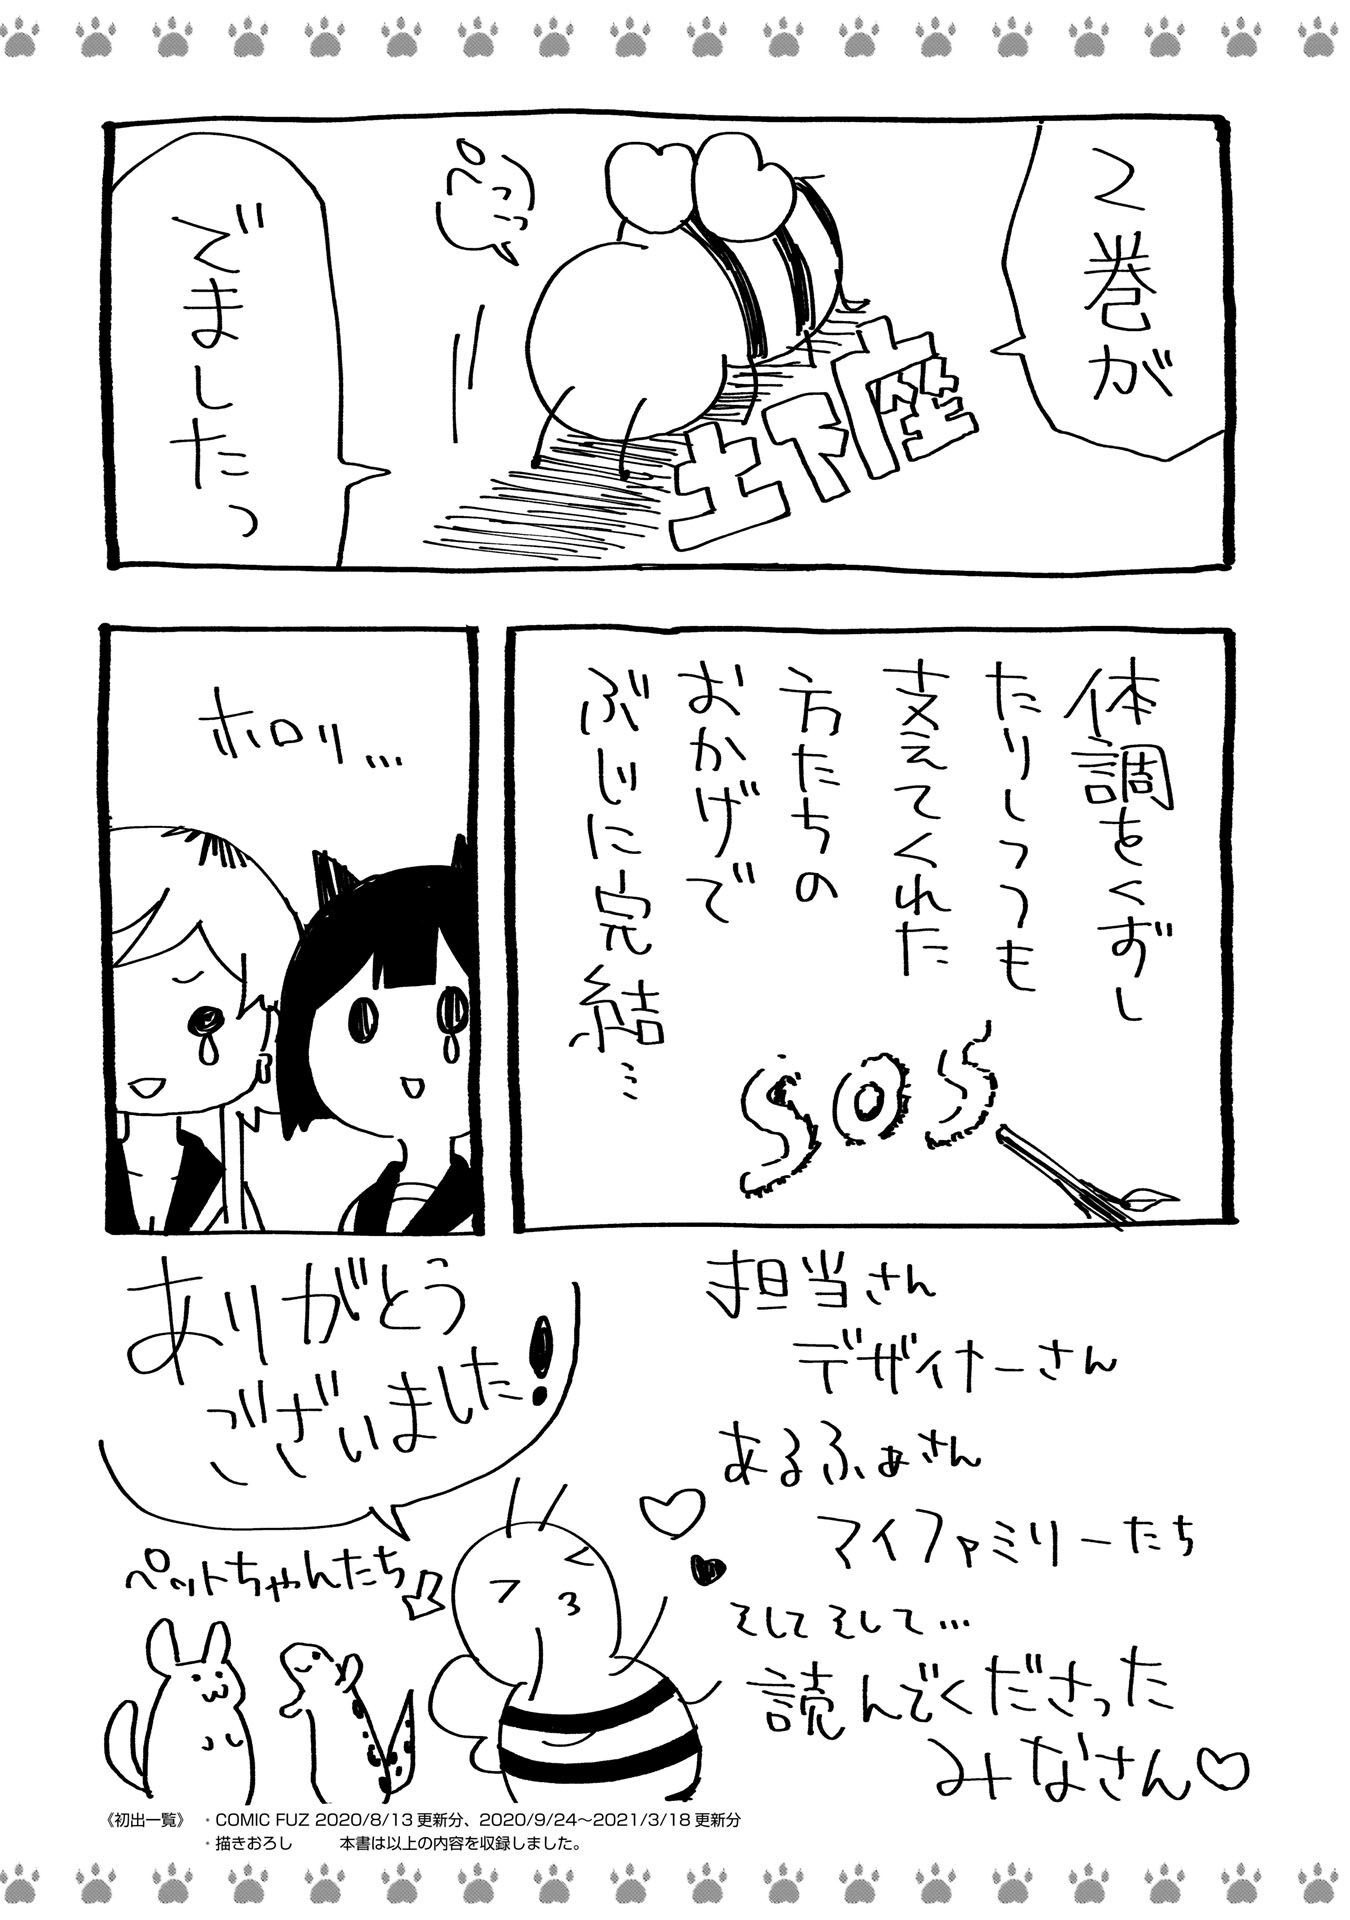 2巻が
ぺっこり
土下座
でましたっ
体調をくずし
たりしつつも
支えてくれた
方たちの
おかげで
ぶじに完結…
SOS
ホロリ…
担当さん
デザイナーさん
あるふぁさん
マイファミリーたち
そしてそして…
読んでくださった
みなさん♡
ありがとう
ございました!
ペットちゃんたち
《初出一覧》 ・COMIC FUZ 2020/8/13更新分、2020/9/24〜2021/3/18更新分
・描きおろし 本書は以上の内容を収録しました。